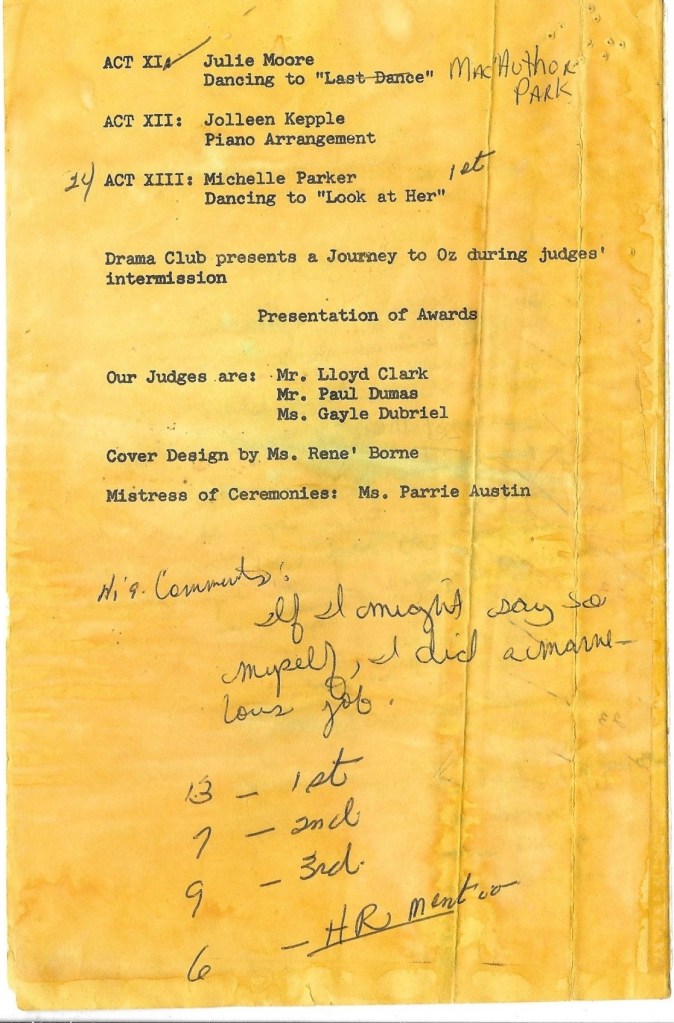 ACT XI: Julie Moore
Dancing to "Last Dance" MacAuthor
PARK
ACT XII: Jolleen Kepple
Piano Arrangement
1st
24) ACT XIII: Michelle Parker
Dancing to "Look at Her"
Drama Club presents a Journey to Oz during judges'
intermission
Presentation of Awards
Our Judges are: Mr. Lloyd Clark
Mr. Paul Dumas
Ms. Gayle Dubriel
Cover Design by Ms. Rene' Borne
Mistress of Ceremonies: Ms. Parrie Austin
Comments:
If I might say so
myself, I did a marve-
lous job.
13 - 1st
7 - 2nd
9 - 3rd.
6 - HR Mention